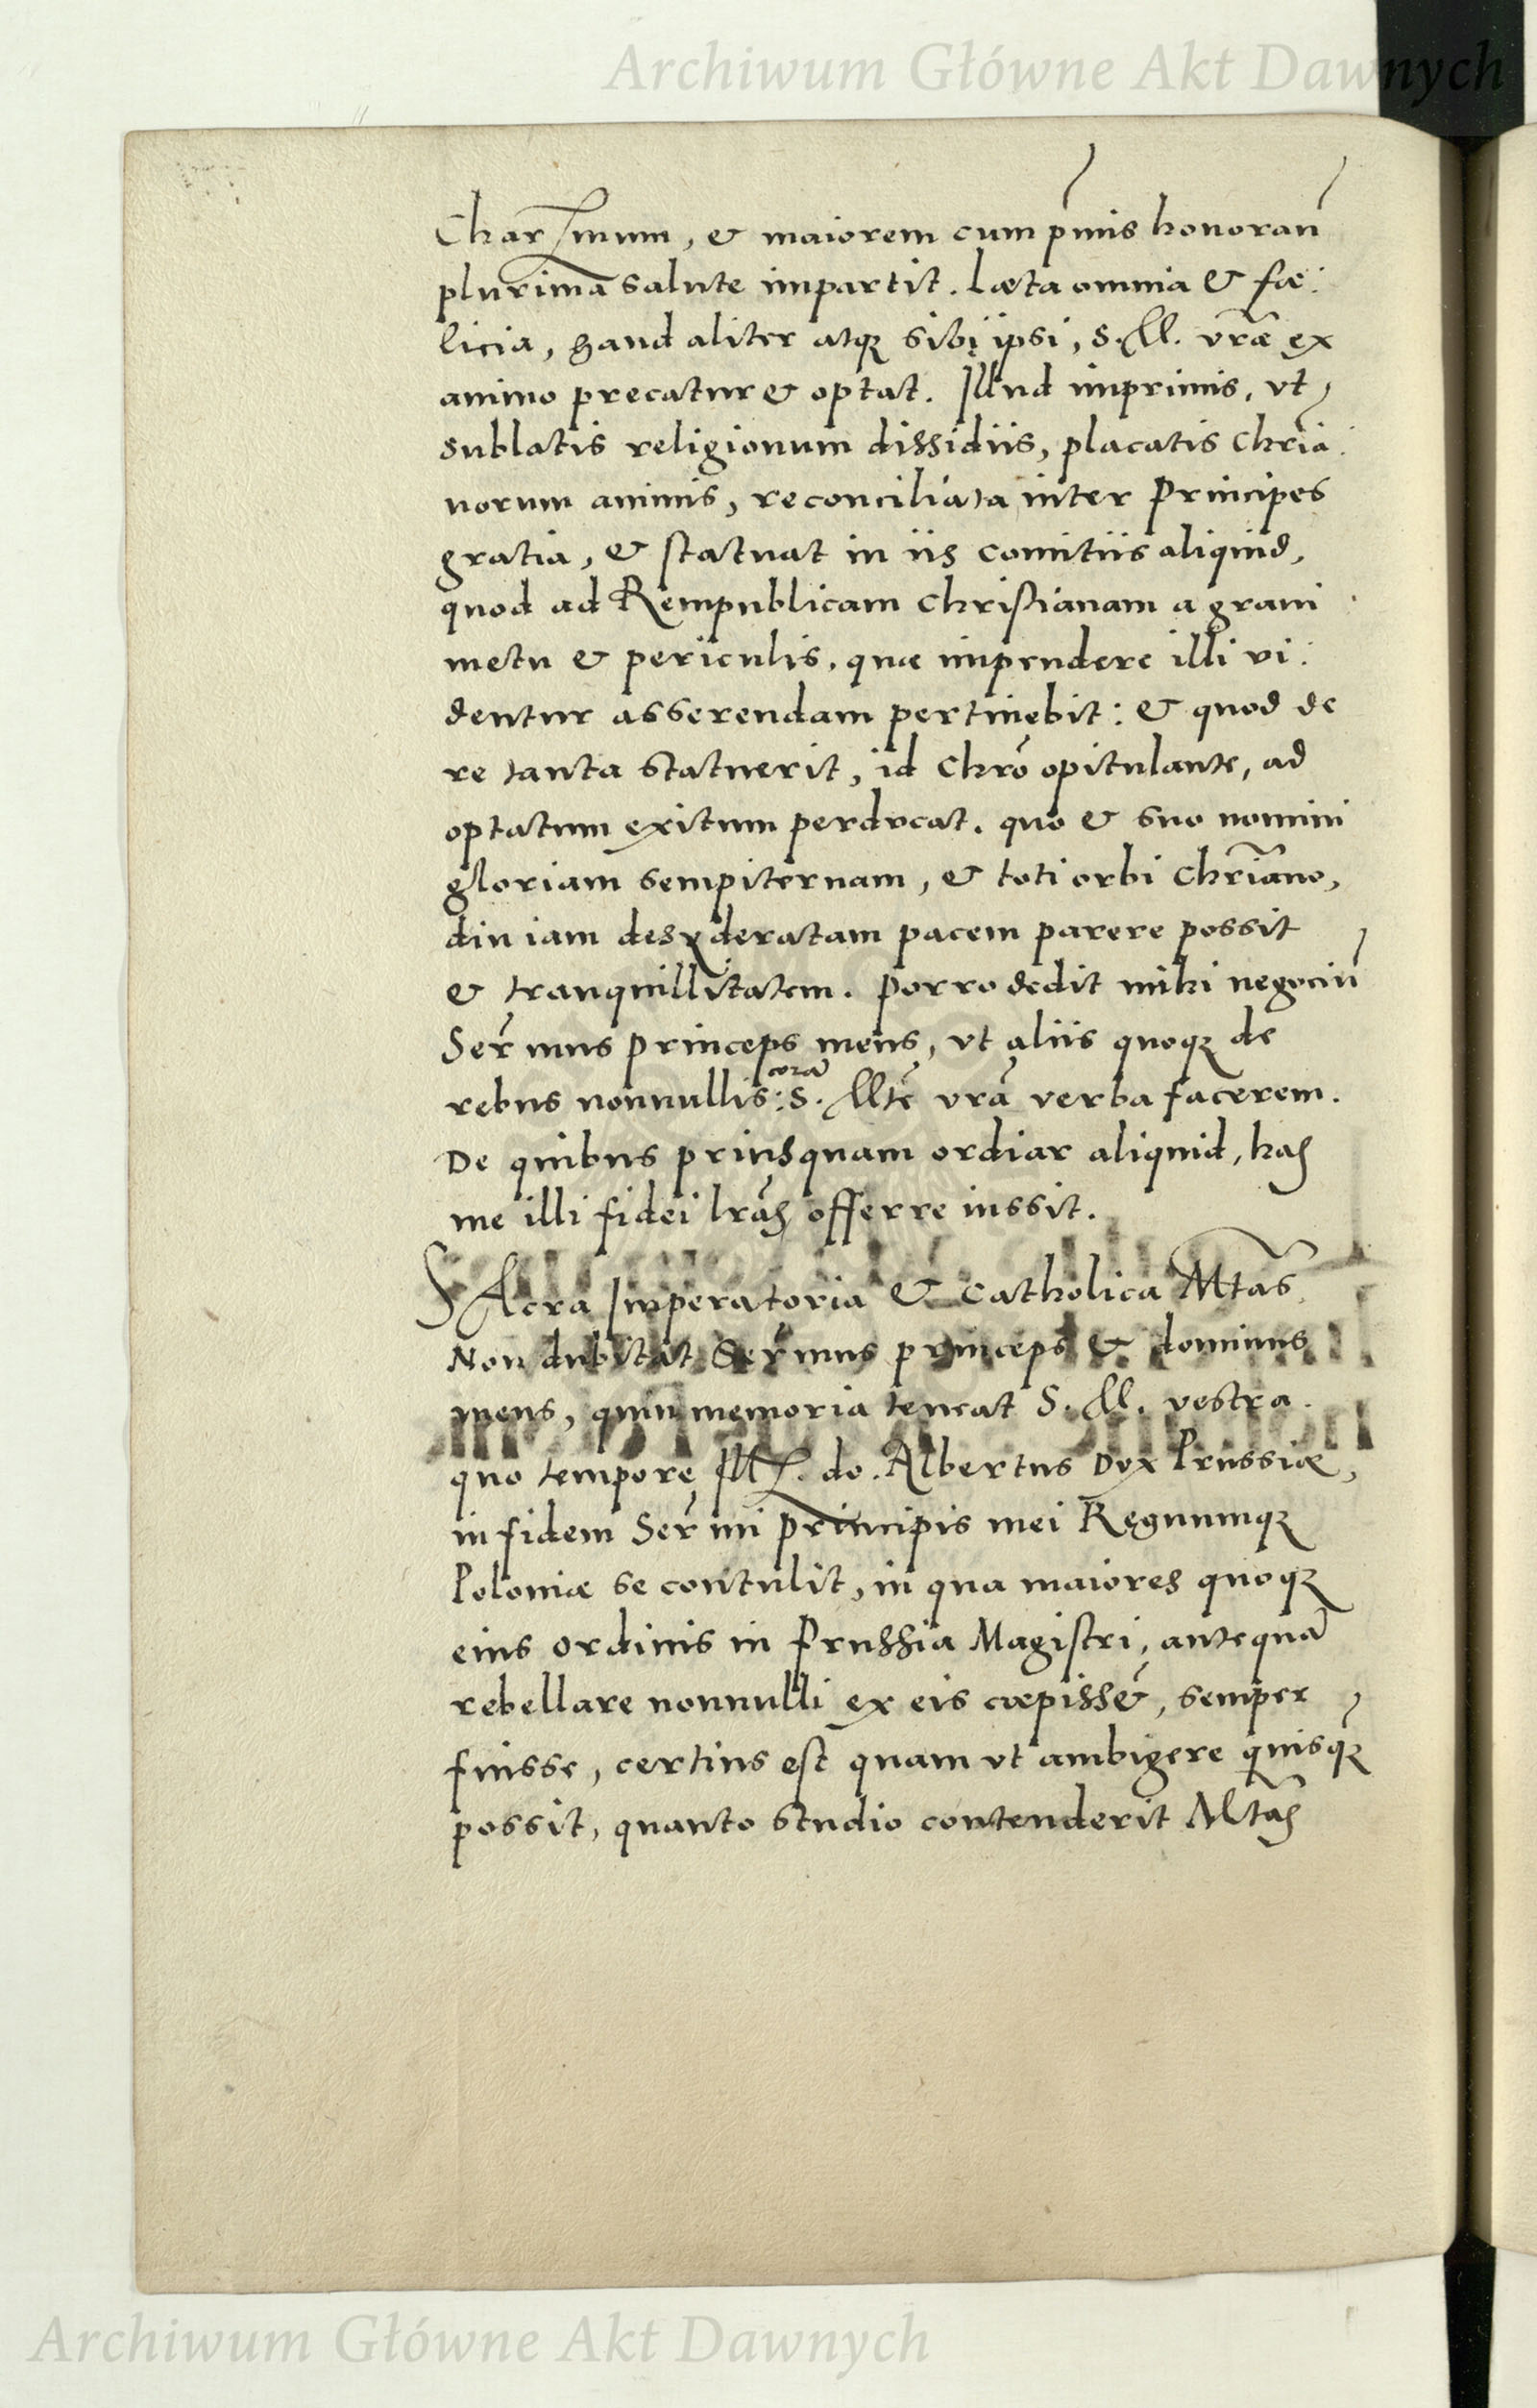 Archiwum Główne Akt Dawnych
Charissmum, & maiorem cum pmis honoran̄
plurimā salute impartit. Læta omnia & fœ:
licia, haud aliter atq; sibi ipsi, S. M. vrāe ex
animo precatur & optat. Illud imprimis, vt
sublatis religionum dissidiis, placatis Chriā:
norum animis, reconciliata inter Principes
gratia, & statuat in iis comitiis aliquid,
quod ad Rempublicam Christianam a graui
metu & periculis, quæ impendere illi vi:
dentur asserendam pertinebit: & quod de
re tanta statuerit, id Chrō opitulante, ad
optatum exitum perducat. quo & suo nomini
gloriam sempiternam, & toti orbi Chriāno,
diu iam desyderatam pacem parere possit
& tranquillitatem. Porro dedit mihi negociū
Ser̄mus princeps meus, vt aliis quoq; de
corā
rebus nonnullis: S. Mtē vrā verba facerem.
De quibus priusquam ordiar aliquid, has
me illi fidei lrās offerre iussit.
SAcra Imperatoria & Catholica Mtas.
Non dubitat Ser̄mus princeps & dominus
meus, quin memoria teneat S. M. vestra.
quo tempore Ill. do. Albertus Dux Prussiæ,
in fidem Ser̄mi principis mei Regnumq;
Poloniæ se contulit, in qua maiores quoq;
eius ordinis in Prussia Magistri, antequā
rebellare nonnulli ex eis cœpissēt, semper
fuisse, certius est quam vt ambigere quisq̄;
possit, quanto studio contenderit Mtas
Archiwum Główne Akt Dawnych